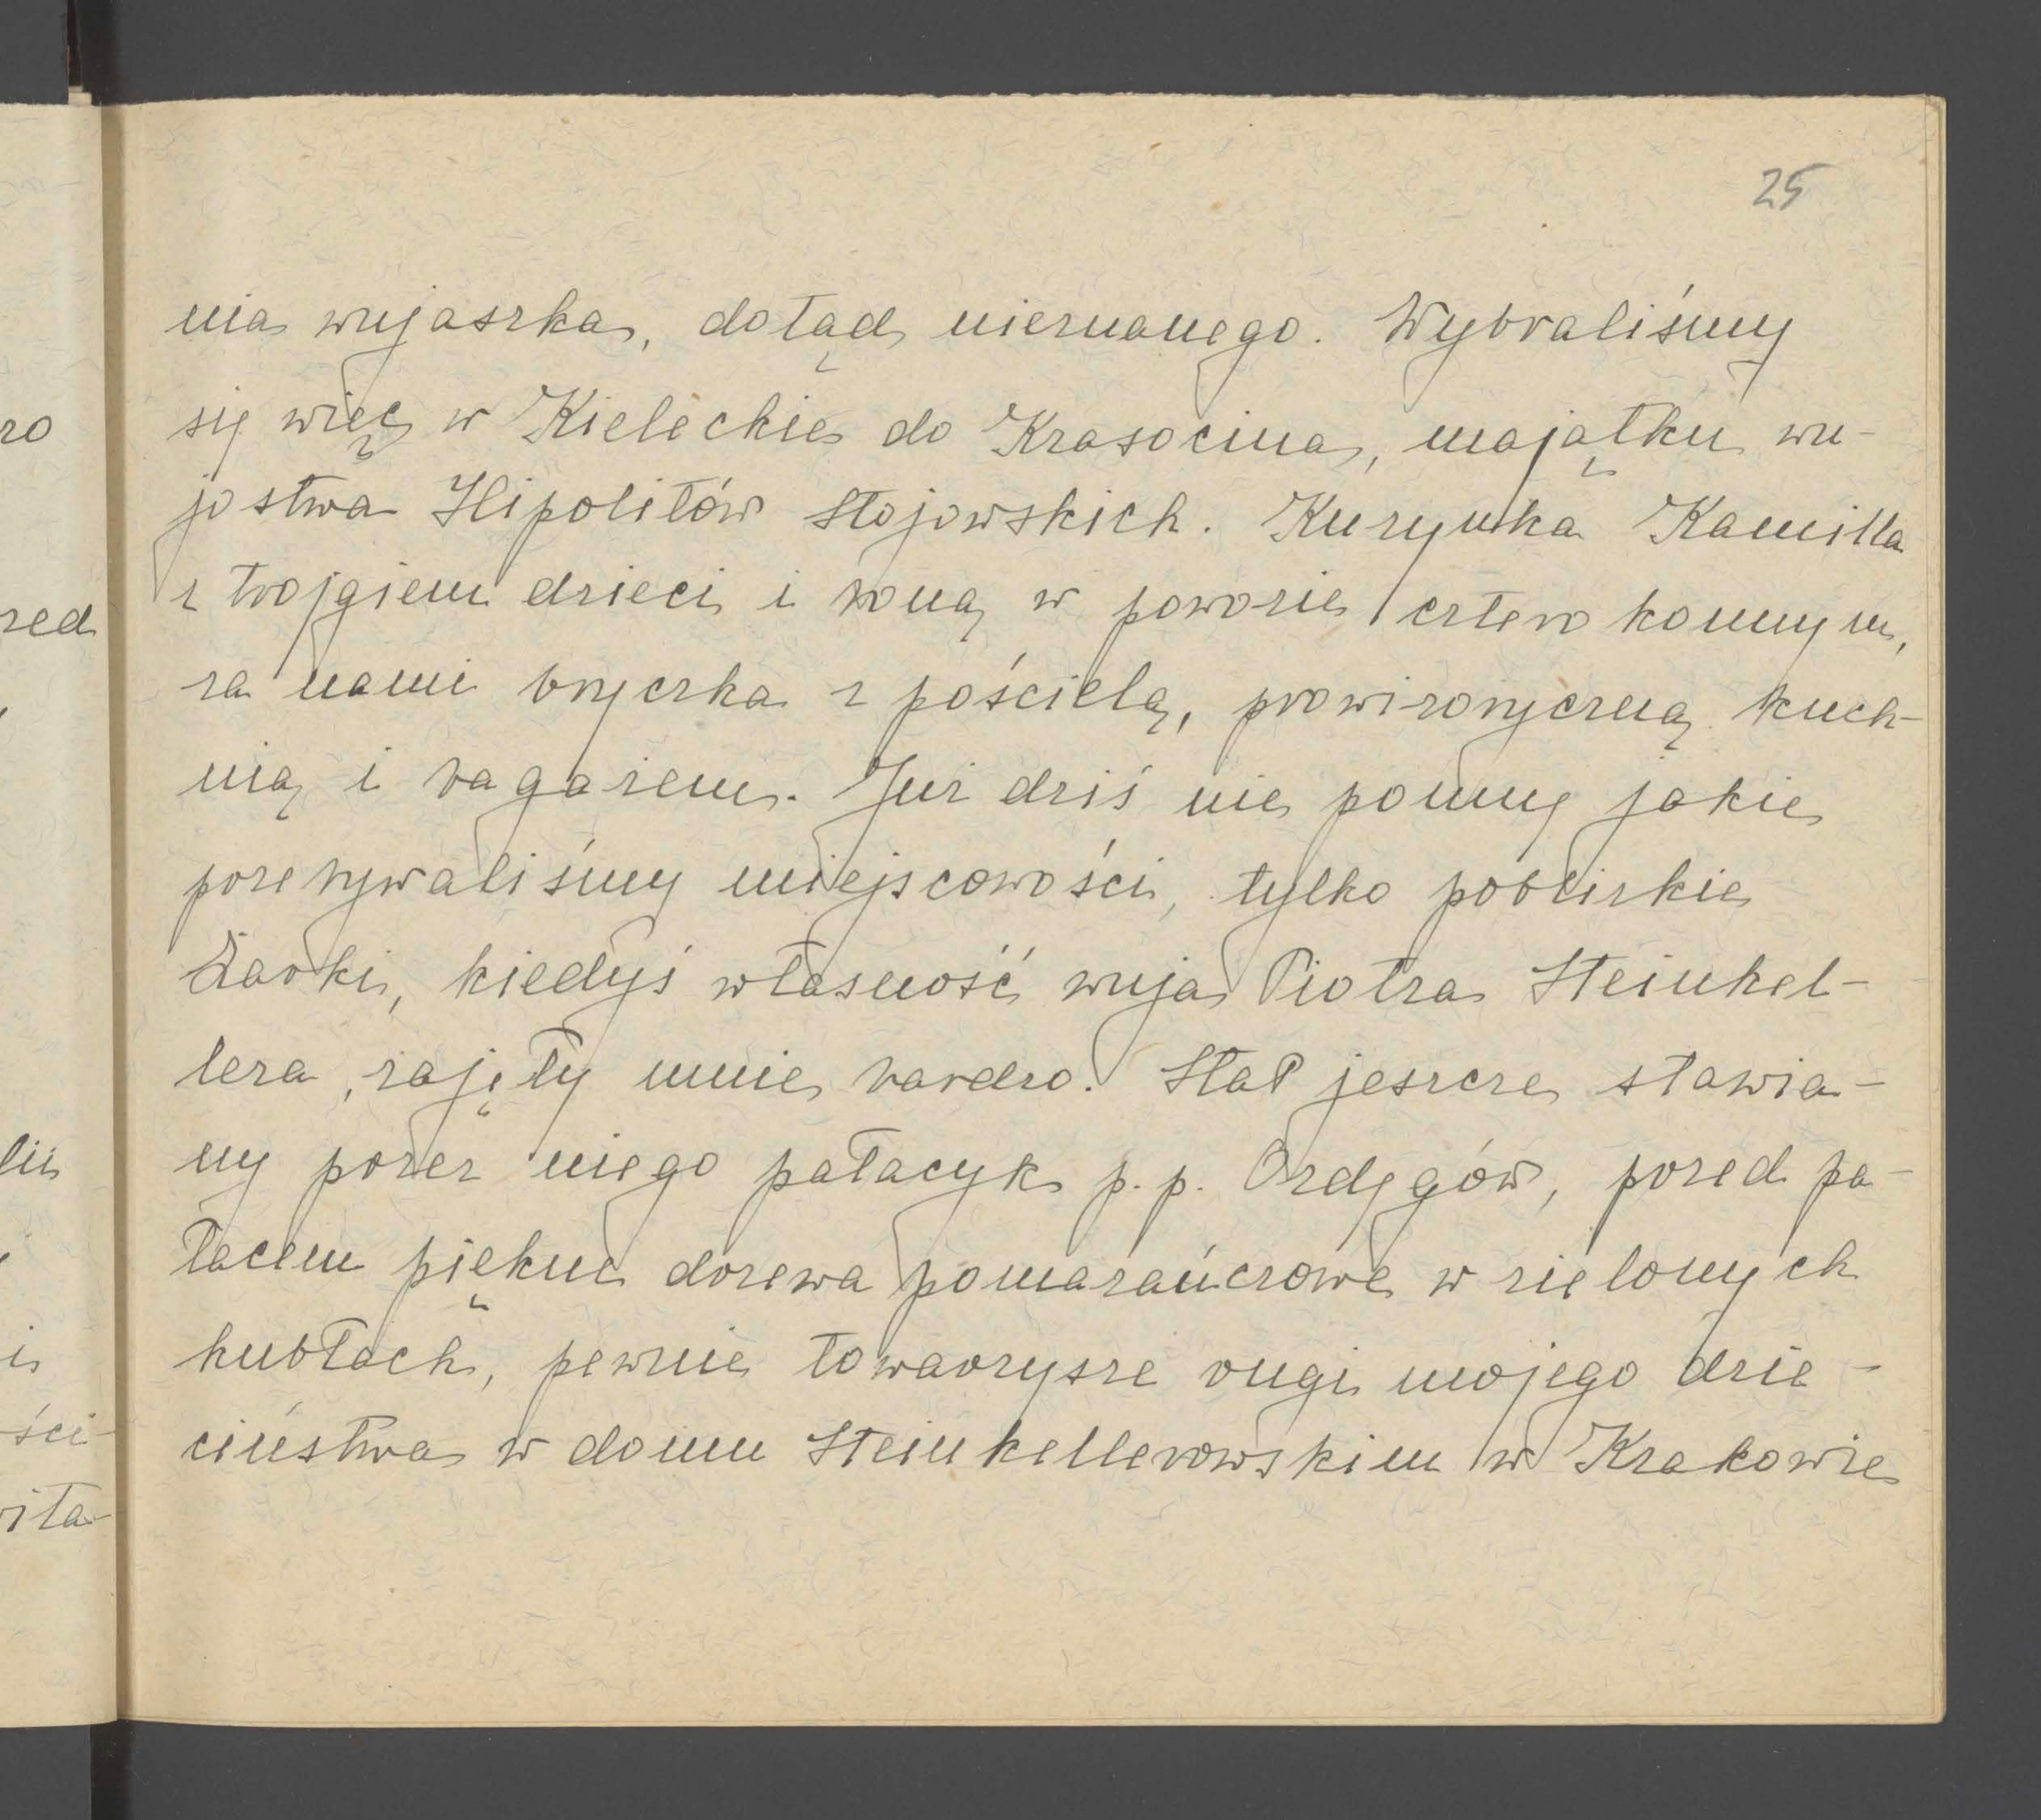 25
nia wujaszka, dotąd nieznanego. Wybraliśmy
się więc w Kieleckie do Krasocina, majątku wu-
jostwa Hipolitów Stojowskich. Kuzynka Kamilla
z trojgiem dzieci i boną w powozie czterokonnym,
za nami bryczka z pościelą, prowizoryczną kuch-
nią i bagażem. Już dziś nie pomny jakie
przebywaliśmy miejscowości, tylko pobliskie
Żarki, kiedyś własność wuja Piotra Steinkel-
lera, zajęły mnie bardzo. Stał jeszcze stawia-
ny przez niego pałacyk p.p. Ordęgów, przed pa-
łacem piękne drzewa pomarańczowe w zielonych
kubłach, pewnie towarzysze rugi mojego dzie-
ciństwa w domu Steinkellerowskim w Krakowie
ro
zed
lis
ści-
ita-